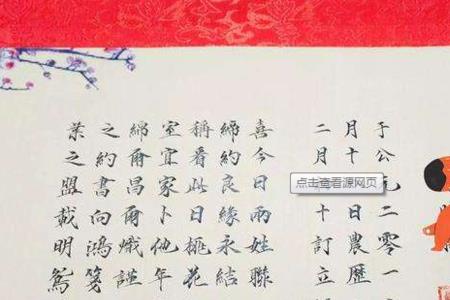 于公元二零一
月十日農歷
二月十訂立
喜今日兩姓聯
締約良緣永結
稱看此日桃花
室宜家卜他年
綿爾昌爾熾謹
之約書向鴻箋
葉之盟載明鴛
点击查看源网页